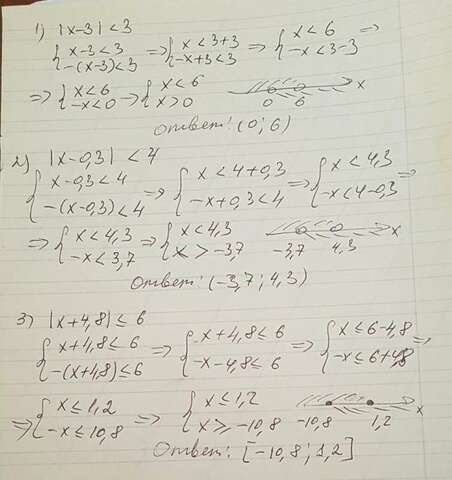 1) |x-3| < 3
{ x-3<3 ⇒ { x<3+3 ⇒ { x<6 ⇒
{ -(x-3)<3 { -x+3<3 { -x<3-3
⇒ { x<6 ⇒ { x<6 x
{ -x<0 { x>0 0 6
Ответ: (0; 6)
2) |x-0,3| < 4
{ x-0,3<4 ⇒ { x<4+0,3 ⇒ { x<4,3 ⇒
{ -(x-0,3)<4 { -x+0,3<4 { -x<4-0,3
⇒ { x<4,3 ⇒ { x<4,3 x
{ -x<3,7 { x>-3,7 -3,7 4,3
Ответ: (-3,7; 4,3)
3) |x+4,8| ≤ 6
{ x+4,8≤6 ⇒ { x+4,8≤6 ⇒ { x≤6-4,8 ⇒
{ -(x+4,8)≤6 { -x-4,8≤6 { -x≤6+4,8
⇒ { x≤1,2 ⇒ { x≤1,2 x
{ -x≤10,8 { x≥-10,8 -10,8 1,2
Ответ: [-10,8; 1,2]